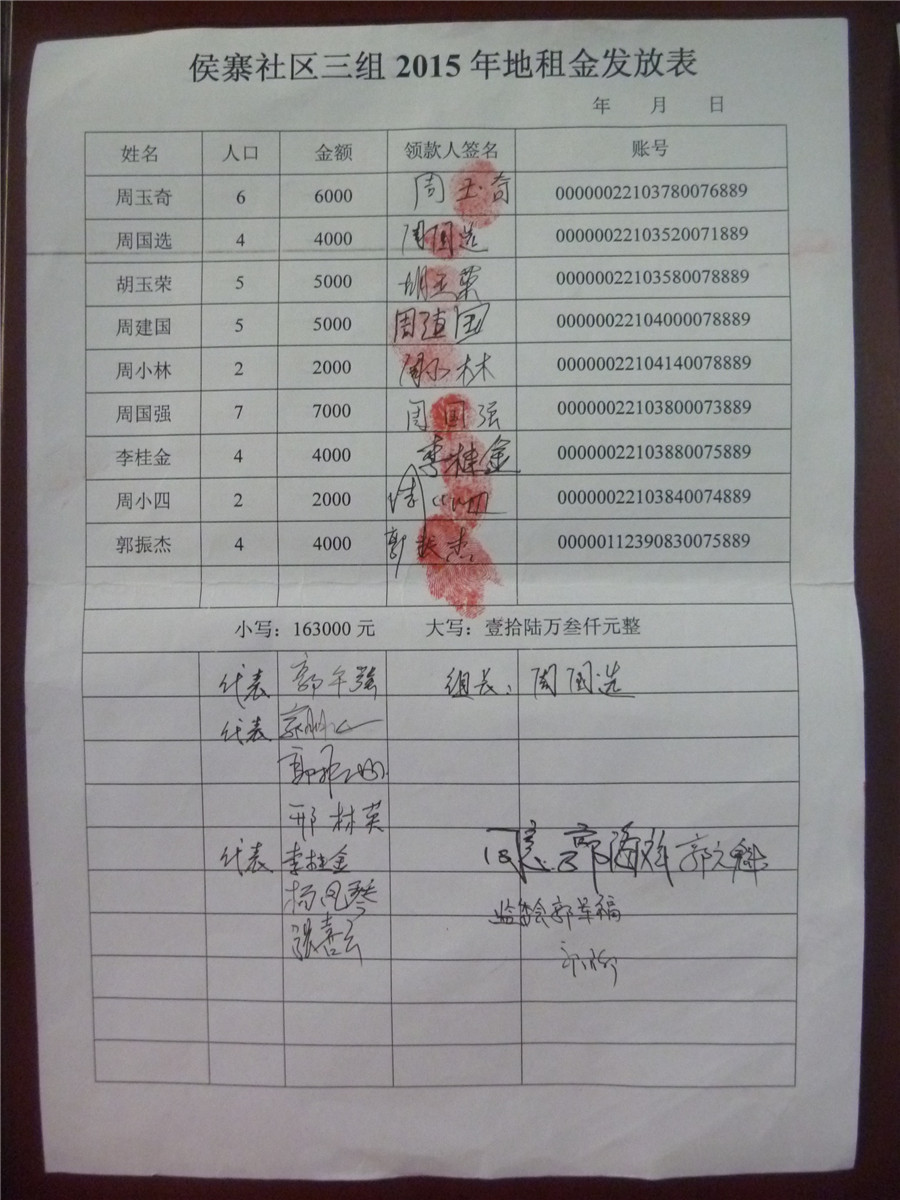 侯寨社区三组 2015 年地租金发放表
年 月 日
姓名 人口 金额 领款人签名 账号
周玉奇 6 6000 周玉奇 00000022103780076889
周国选 4 4000 周国选 00000022103520071889
胡玉荣 5 5000 胡玉荣 00000022103580078889
周建国 5 5000 周建国 00000022104000078889
周小林 2 2000 周小林 00000022104140078889
周国强 7 7000 周国强 00000022103800073889
李桂金 4 4000 李桂金 00000022103880075889
周小四 2 2000 周小四 00000022103840074889
郭振杰 4 4000 郭振杰 00000112390830075889
小写：163000 元 大写：壹拾陆万叁仟元整
代表 郭午强 组长：周国选
代表
邢林英
代表 李桂金
杨凤琴
张喜云
监委会郭军福